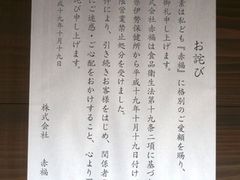 お詫び
素は私ども『赤福』に格別のご愛顧を賜り、
御礼申し上げます。
式会社赤福は食品衛生法第十九条二項に基づ
県伊勢保健所から平成十九年十月十九日付け
限営業禁止処分を受けました。
件により、引き続きお客様をはじめ、関係者
にご迷惑・ご心配をおかけすること、心より
詫び申し上げます。
成十九年十月十九日
株式会社 赤福